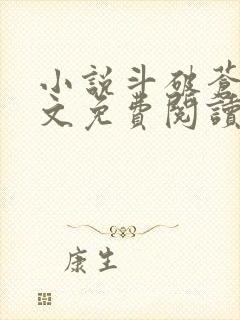 小說斗破蒼
文免費閱讀
康生